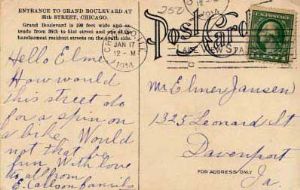 ENTRANCE TO GRAND BOULEVARD AT
35th STREET, CHICAGO.
Grand Boulevard is 198 feet wide and ex-
tends from 35th to 51st street and one of the
handsomest resident streets on the south side.
Post Card
JAN 17
12-M
Hello Elme
How would
this street do
for a spin on
a bike. Would
not that be
fun. With love
to all from
E. Carlson family
Mr Elmer Jansen
1325 Leonard St
Davenport
Ia.
FOR ADDRESS ONLY